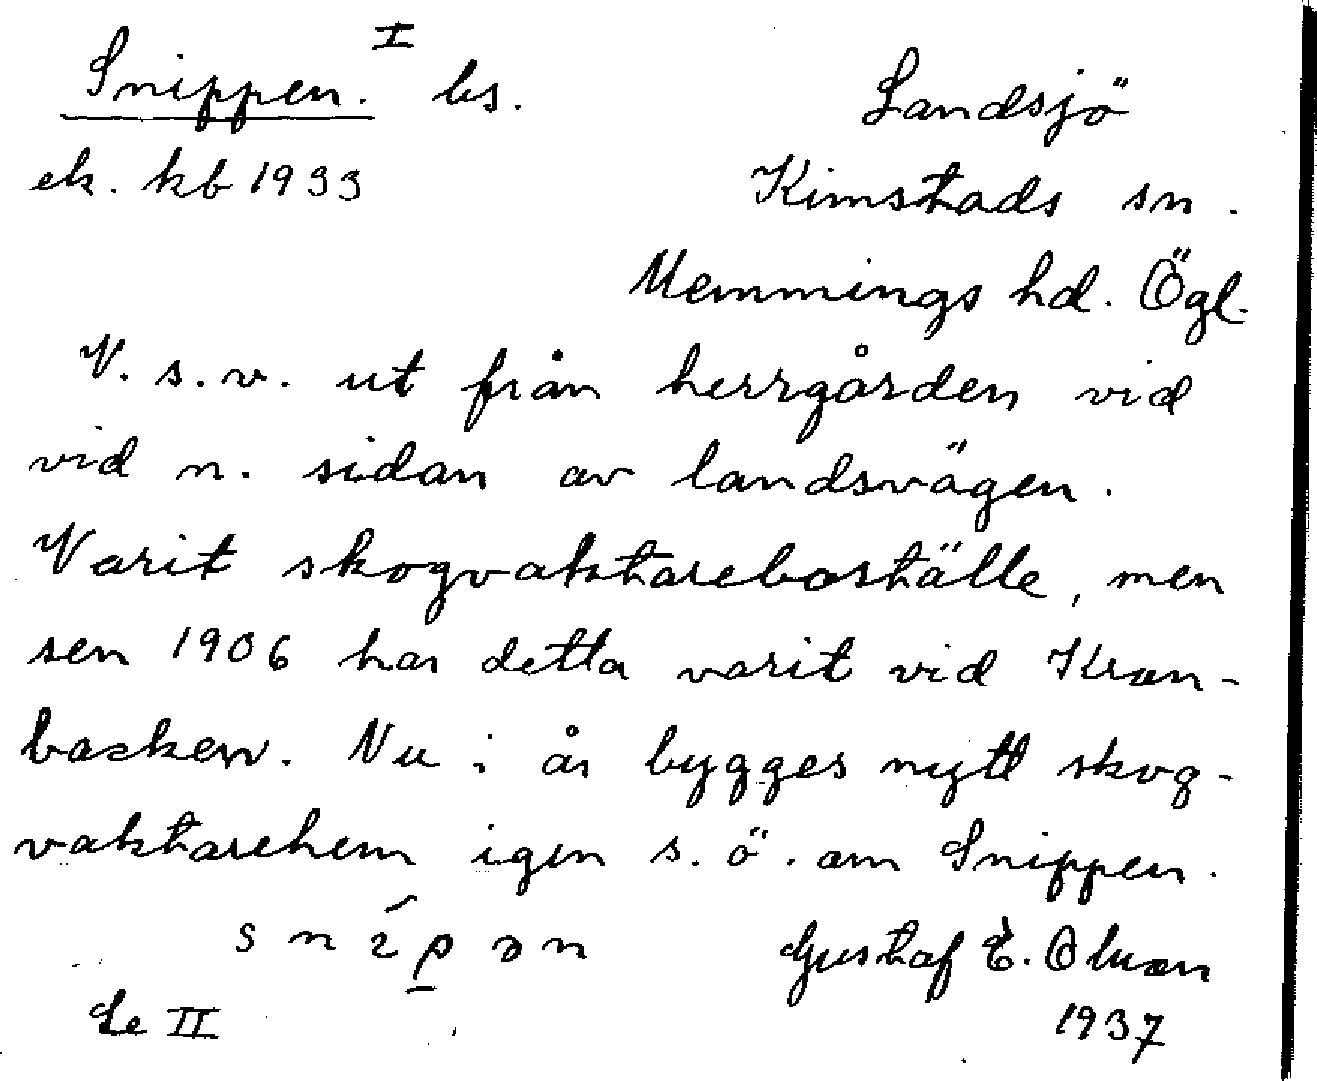 Snippen. I bs.
Landsjö
ek. kb 1933
Kimstads sn.
Memmings hd. Ögl.
V. s. v. ut från herrgården vid
vid n. sidan av landsvägen.
Varit skogvaktareboställe, men
sen 1906 har detta varit vid Kran-
backen. Nu i år bygges nytt skog-
vaktarehem igen s. ö. om Snippen.
s n í p ə n
Gustaf E. Olsson
Se II
1937